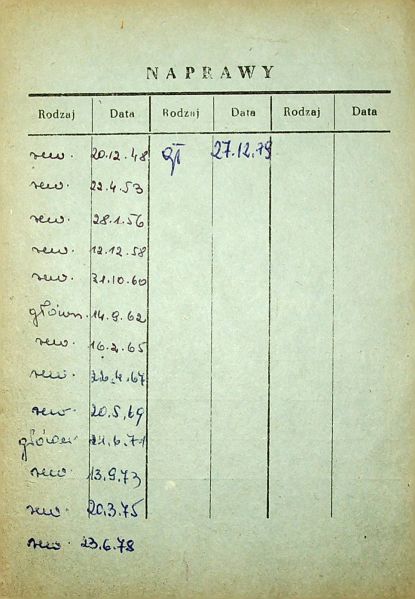 NAPRAWY
Rodzaj Data Rodzaj Data Rodzaj Data
rew. 20.12.48 gł 27.12.79
rew. 22.4.53
rew. 28.1.56
rew. 12.12.58
rew. 31.10.60
główn. 14.9.62
rew. 16.2.65
rew. 22.4.67
rew. 20.5.69
główn. 21.6.71
rew. 13.9.73
rew. 20.3.75
rew. 23.6.78